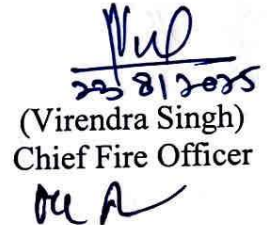 23/8/2025
(Virendra Singh)
Chief Fire Officer